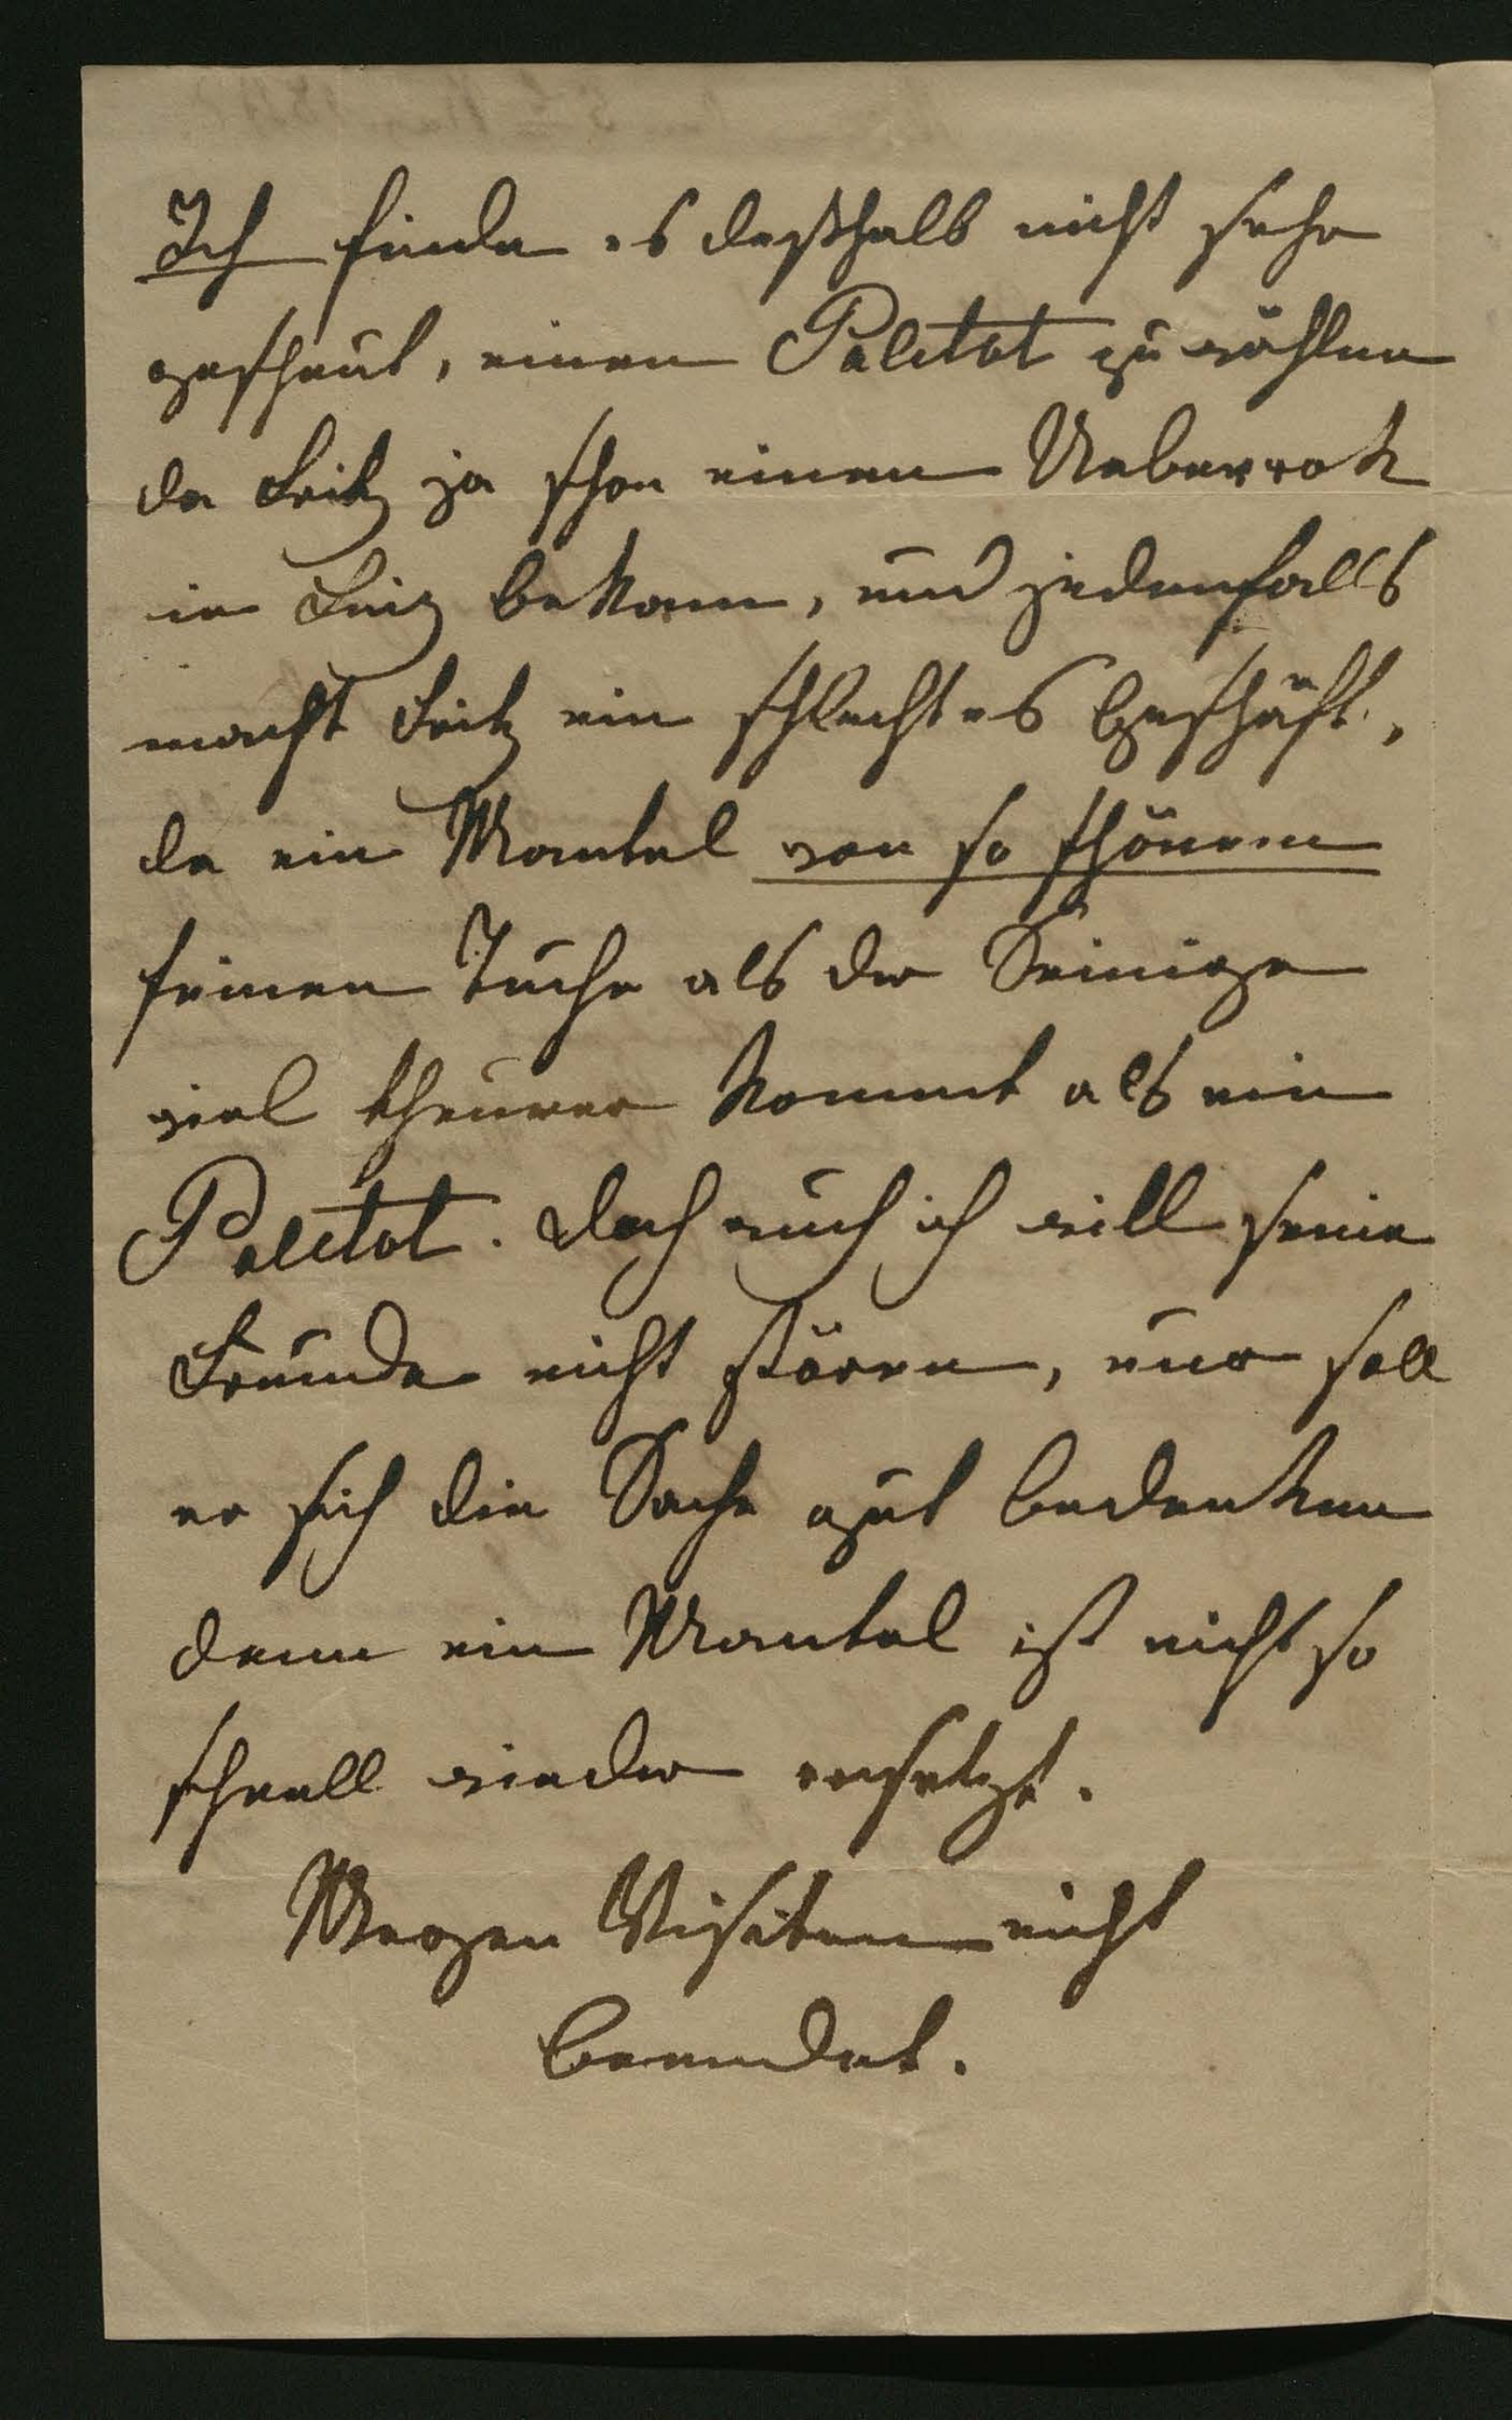 Ich finde es deßhalb nicht sehr
gescheut, einen Paletot zu wählen
da Fritz ja schon einen Ueberrok
in Linz bekam, und jedenfalls
macht Fritz ein schlechtes Geschäft,
da ein Mantel von so schönem
feinen Tuche als der Seinige
viel theurer kommt als ein
Paletot. Doch auch ich will seine
Freunde nicht stören, nur soll
er sich die Sache gut bedenken
denn ein Mantel ist nicht so
schnell wieder ersetzt.
Wegen Visiten nicht
beendet.